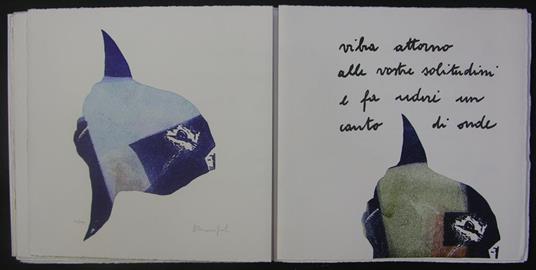 vibra attorno
alle vostre solitudini
e fa udire un
canto di onde